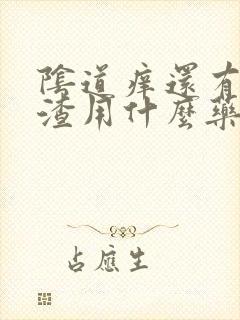 陰道痒還有
渣用什麼藥
占應生